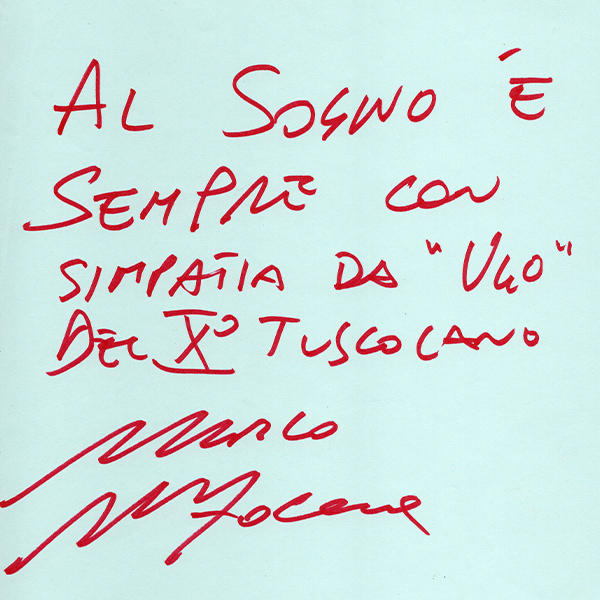 AL SOGNO È
SEMPRE CON
SIMPATIA DA "UGO"
DEL X° TUSCOLANO
MARCO